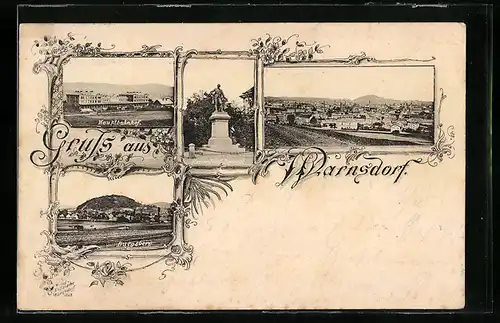 Hauptbahnhof.
Gruss aus
Warnsdorf.
Burgsberg